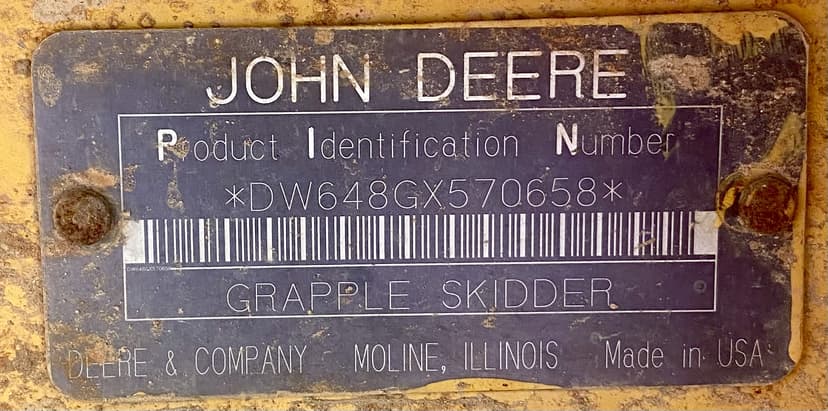 JOHN DEERE
Product Identification Number
*DW648GX570658*
GRAPPLE SKIDDER
DEERE & COMPANY MOLINE, ILLINOIS Made in USA